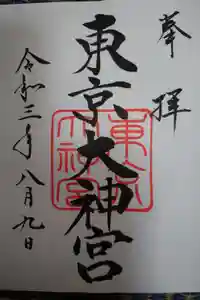 奉拝
東京大神宮
東京大神宮
令和三年八月九日